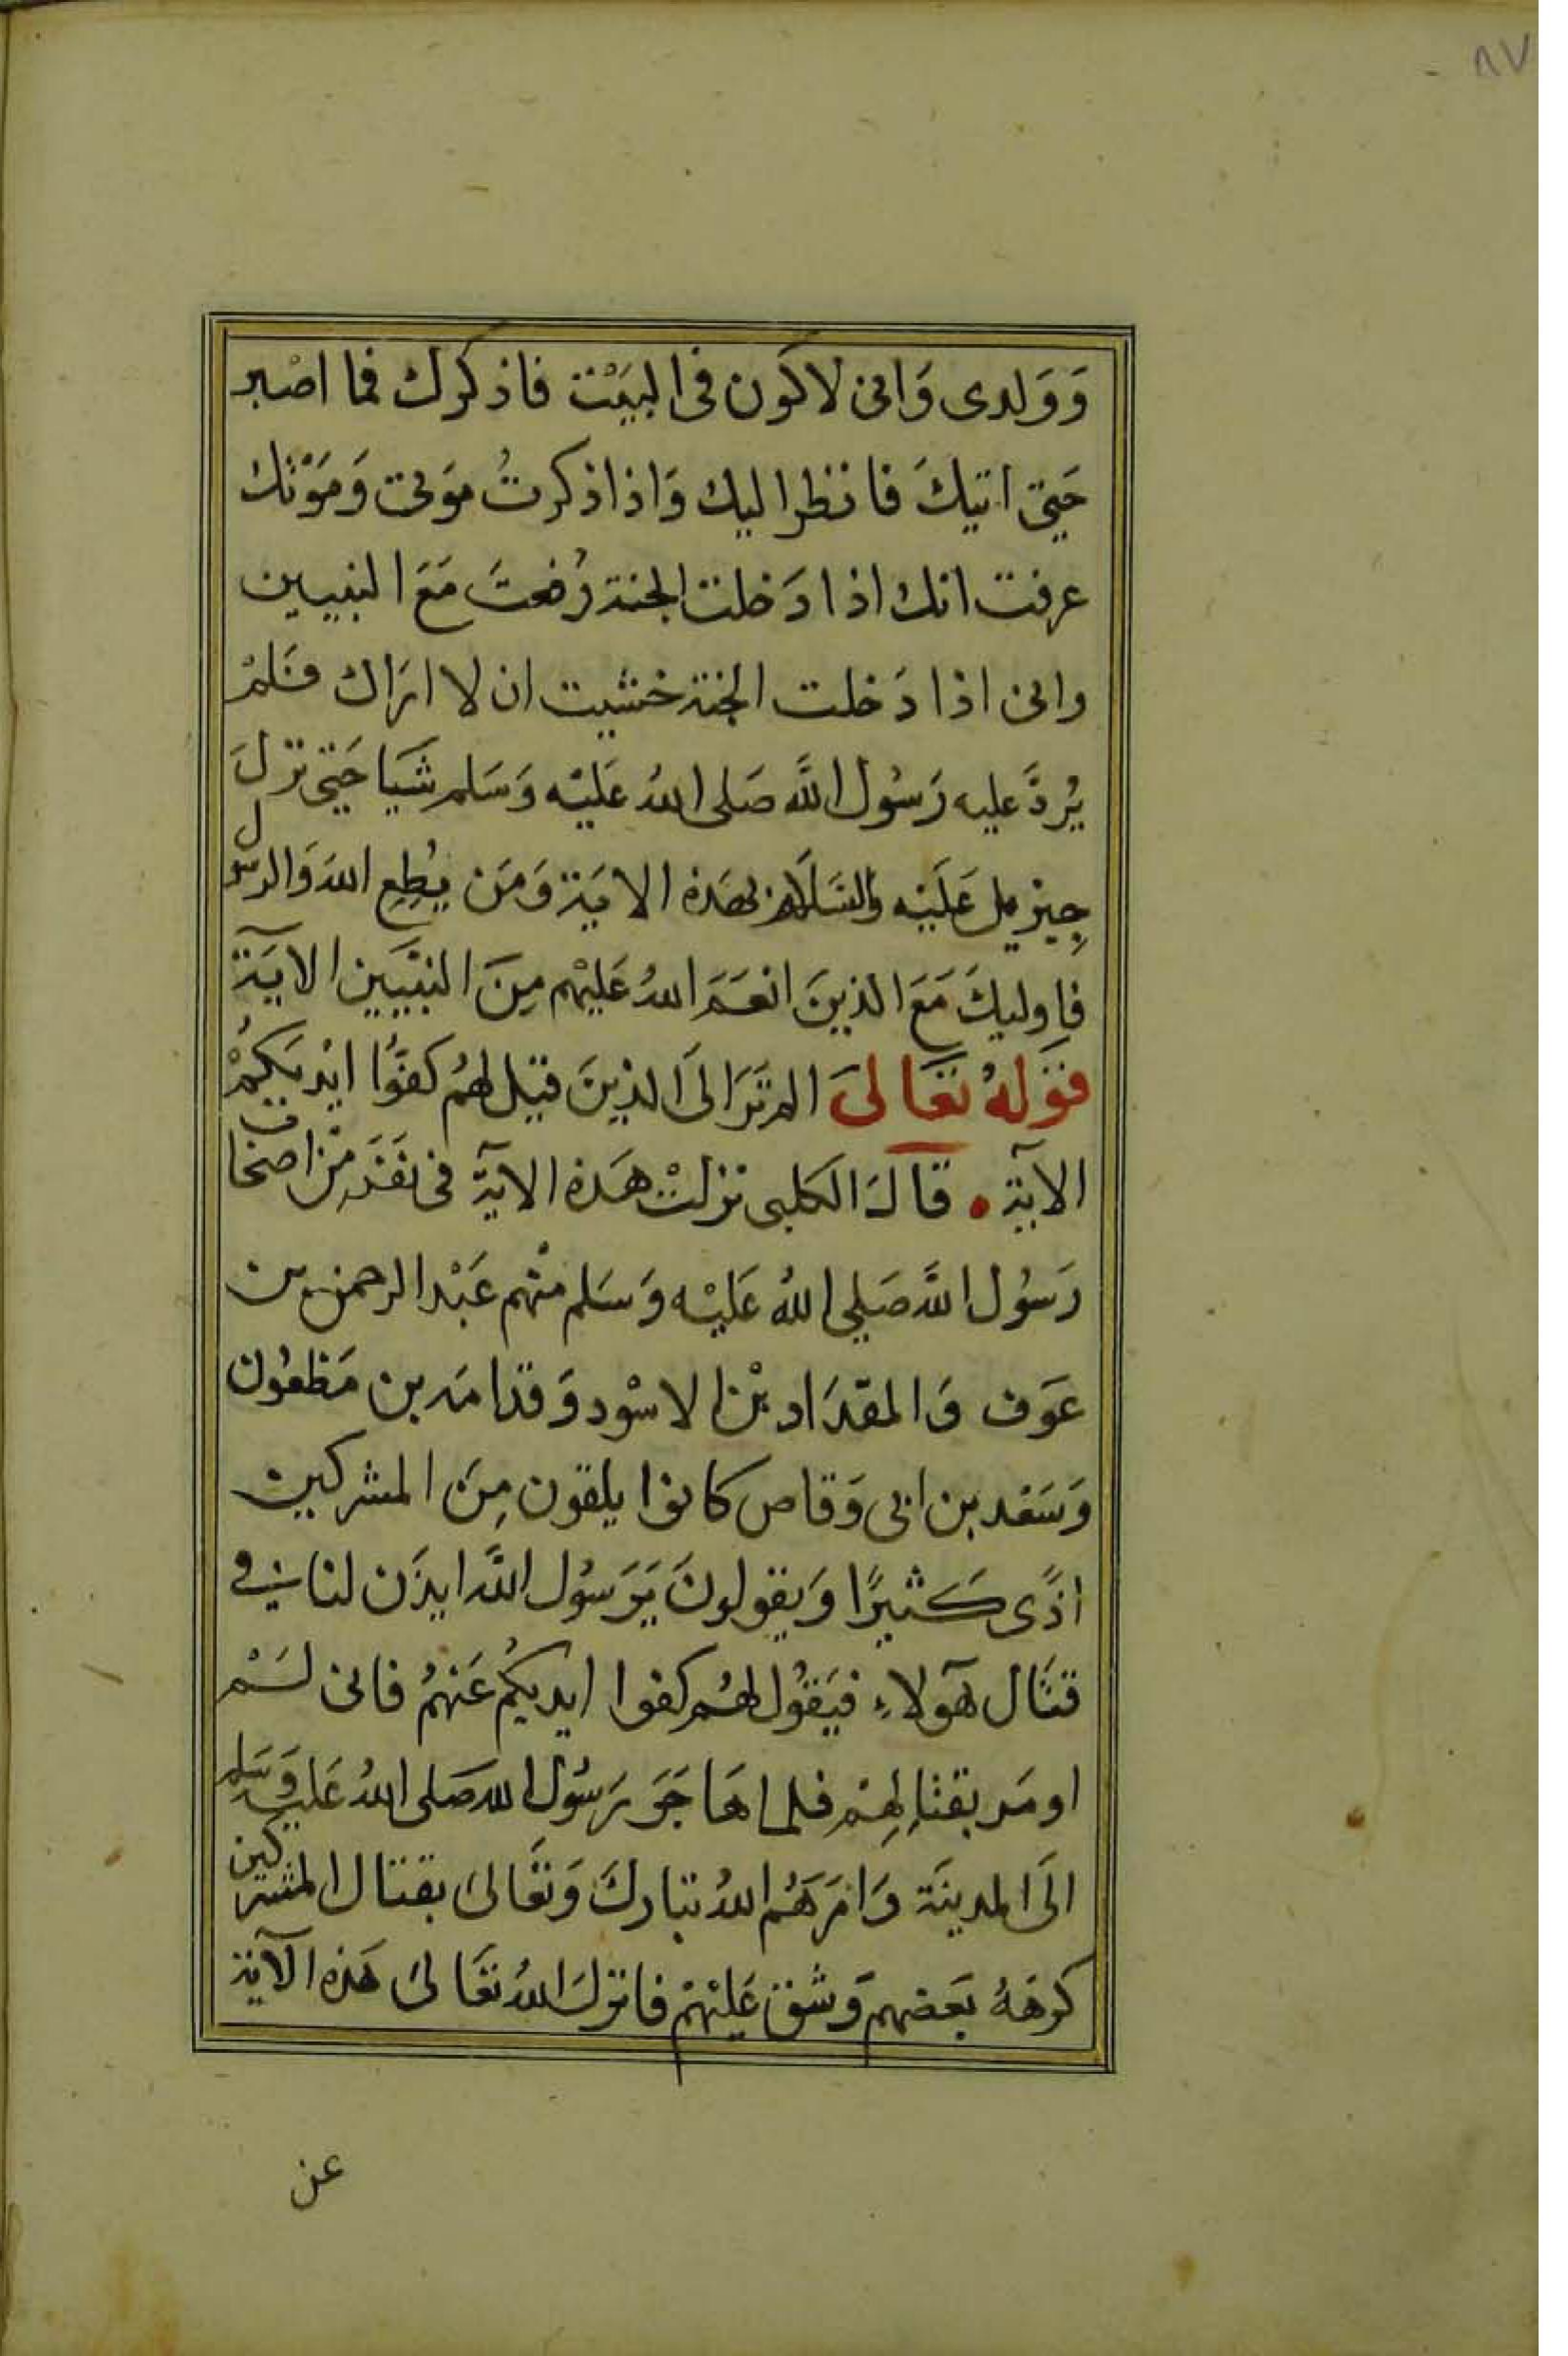 ٨٧
وَوَلدى وَانى لاكون فى البيَتْ فاذكرك فما اصْبر
حَتى اتيكَ فانظر اليك وَاذا ذكرتُ موَتى وَمَوْتك
عرفت انك اذا دَخلت الجنة رُفعتَ مَعَ النبيين
وانى اذا دَخلت الجنة خشيت ان لا ارَاك فَلمْ
يُردَّ عليه رَسُول اللَّه صَلى اللهُ عَليْه وَسَلم شَيا حَتى نزلَ
جِبْريل عَليْه وَالسَّلام بهَذه الايَة وَمَن يُطِعِ اللهَ وَالرسول
فاوليكَ مَعَ الذينَ انعَمَ اللهُ عَليْهم مِنَ النبيّين الآيَة
قوَلهُ تعَالىَ الم ترَ الىَ الذينَ قيل لهُم كفوُّا ايْديَكُمْ
الآية . قالَ الكلبى نزلتْ هَذه الآيَة فى نفَر مِنْ اصْحَاب
رَسُول اللَّه صَلي اللهُ عَليْه وَسَلم منْهم عَبْد الرحمن بن
عَوف وَالمقدَاد بْن الاسْود وَقدامَه بن مَظعُون
وَسَعْد بن ابى وَقاص كانوا يلقون مِنَ المشركين
اذًى كَثيرًا وَيقولونَ يَرَسُول اللَّه ايذَن لنا فى
قتَال هَآولاء فيَقُول لهُم كفوا ايديكُم عَنهُم فانى لَمْ
اومَر بقتالِهِمْ فلما هَاجَر رَسُول الله صَلى اللهُ عَليه وَسَلم
الىَ المدينَة وَامَرَهُم اللهُ تبَاركَ وَتعَالىَ بقتال المشركين
كرهَهُ بَعضهم وَشق عَليْهمْ فانزلَ اللهُ تعَالىَ هَذه الآية
عن